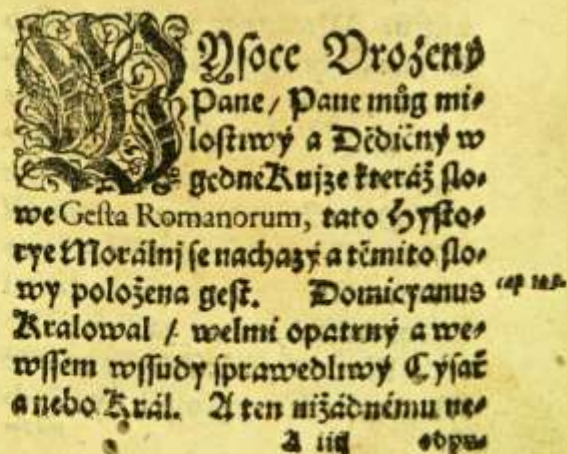 WYsoce Vrozený
Pane / Pane můg mi⸗
lostiwý a Dědičný w
gedneKnjze kteráž slo⸗
we Gesta Romanorum, tato Hysto⸗
rye Morálnj se nachazý a těmito slo⸗
wy položena gest. Domicyanus
Kralowal / welmi opatrný a we⸗
wssem wssudy sprawedliwý Cýsař
a nebo Král. A ten nižádnému ne⸗
A iij odpu⸗